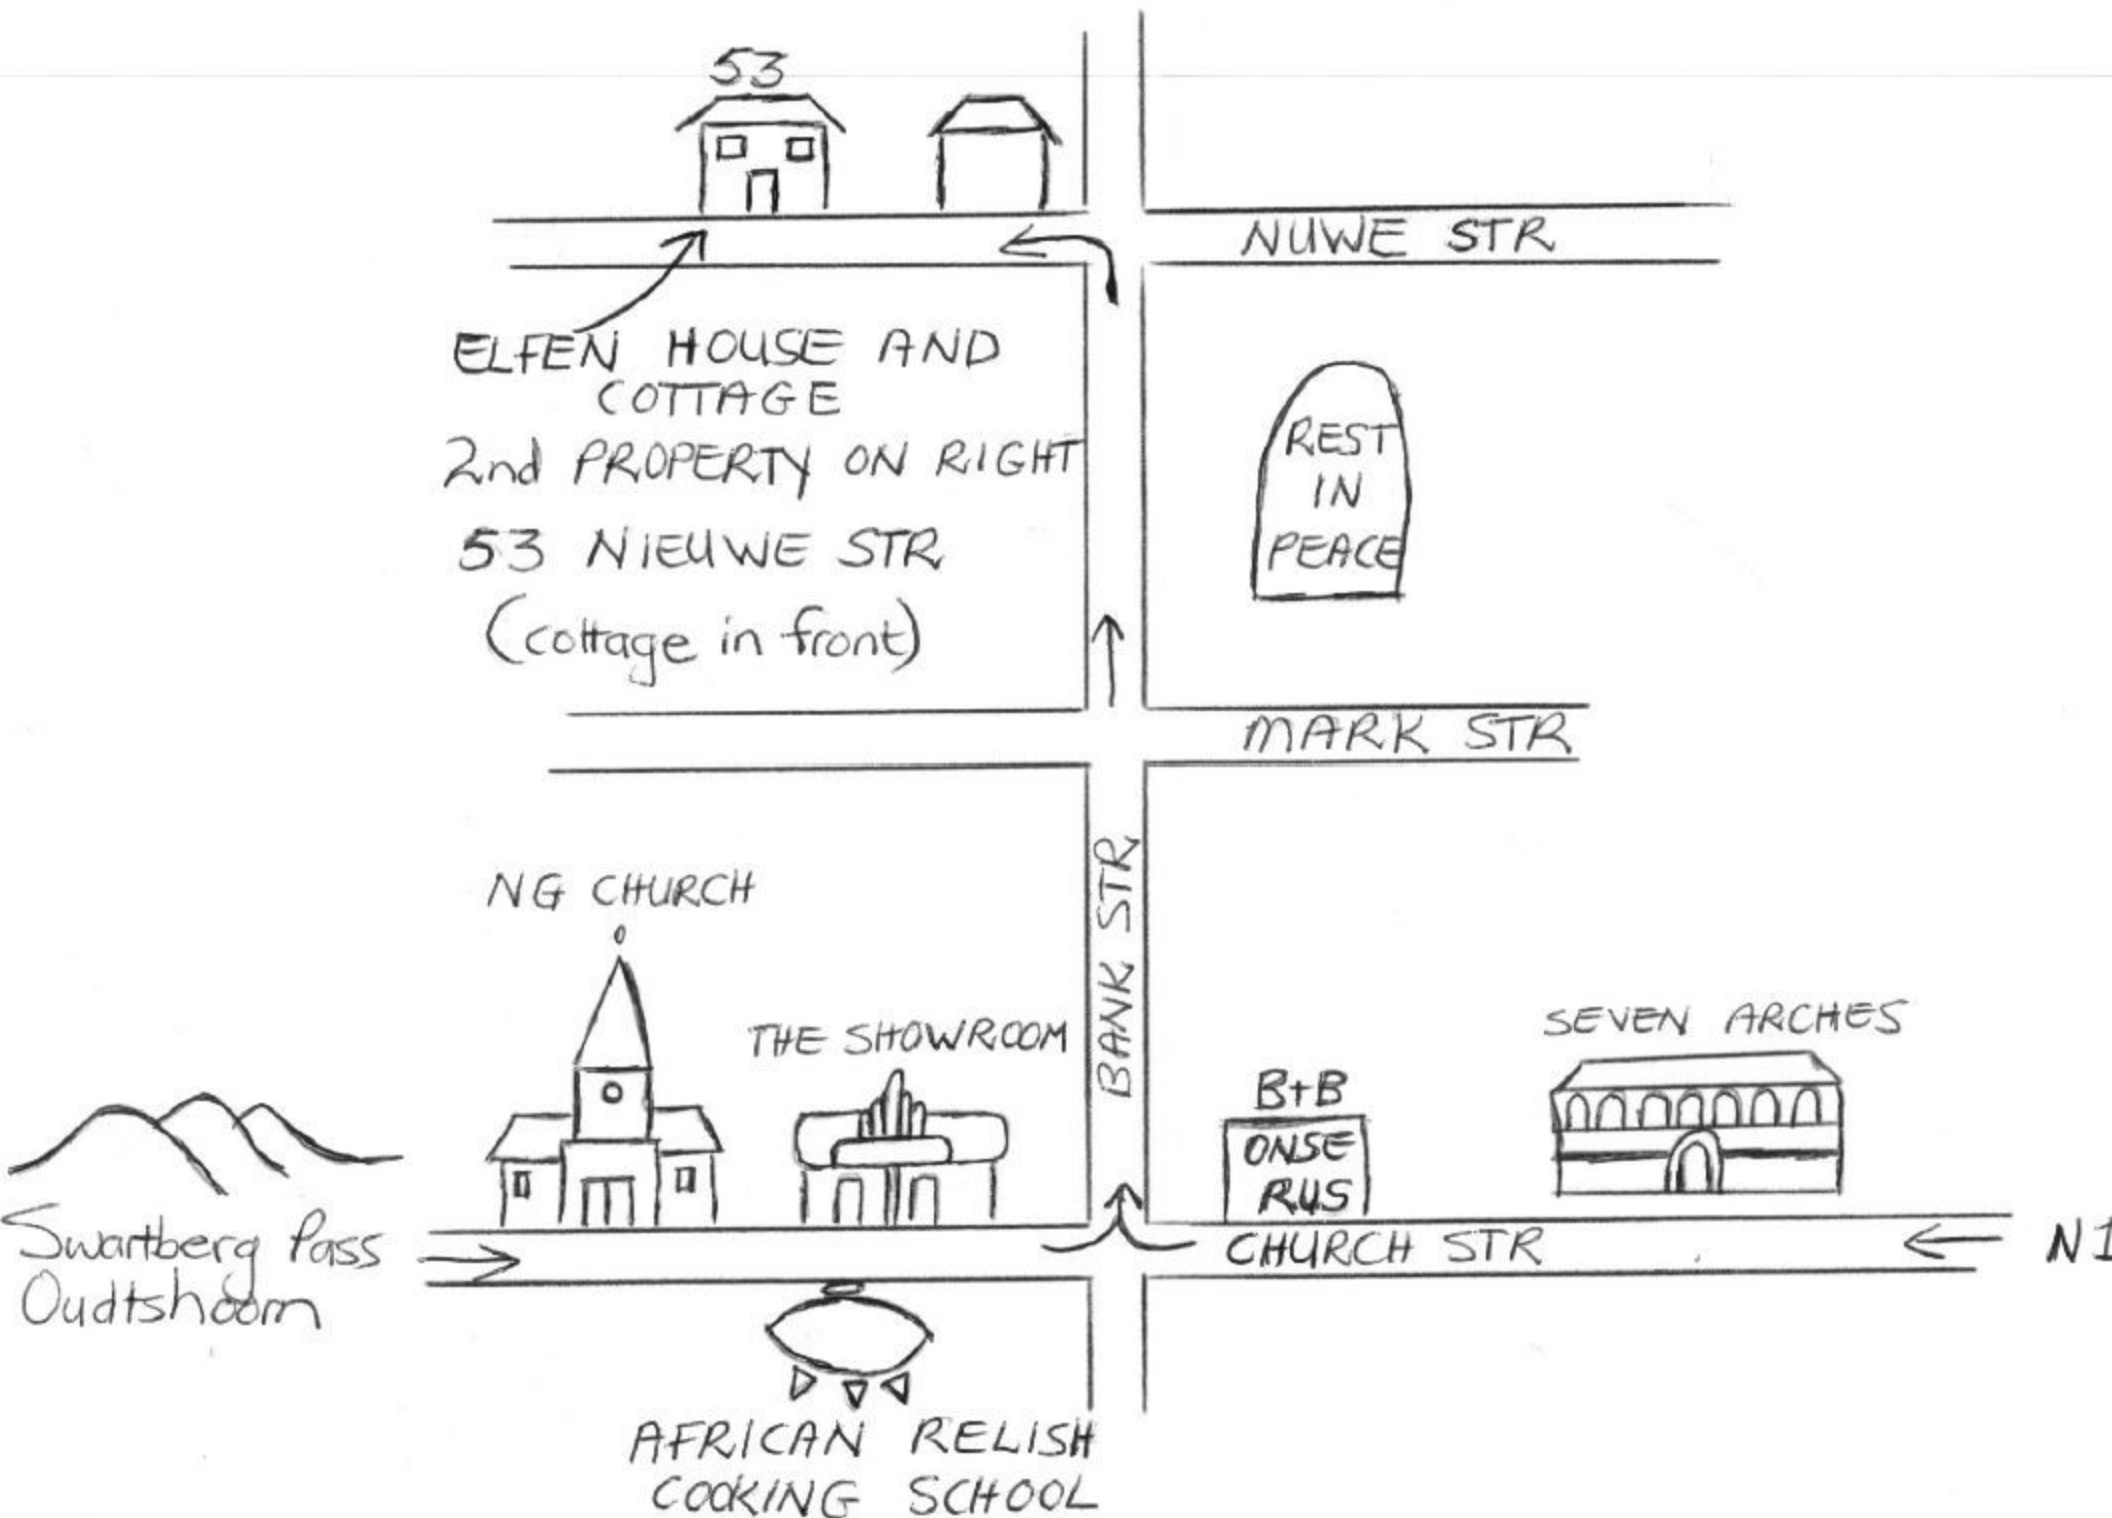 53
NUWE STR
ELFEN HOUSE AND
COTTAGE
2nd PROPERTY ON RIGHT
53 NIEUWE STR
(cottage in front)
REST
IN
PEACE
MARK STR
BANK STR
NG CHURCH
THE SHOWROOM
SEVEN ARCHES
B+B
ONSE
RUS
Swartberg Pass
Oudtshoorn
CHURCH STR
N1
AFRICAN RELISH
COOKING SCHOOL